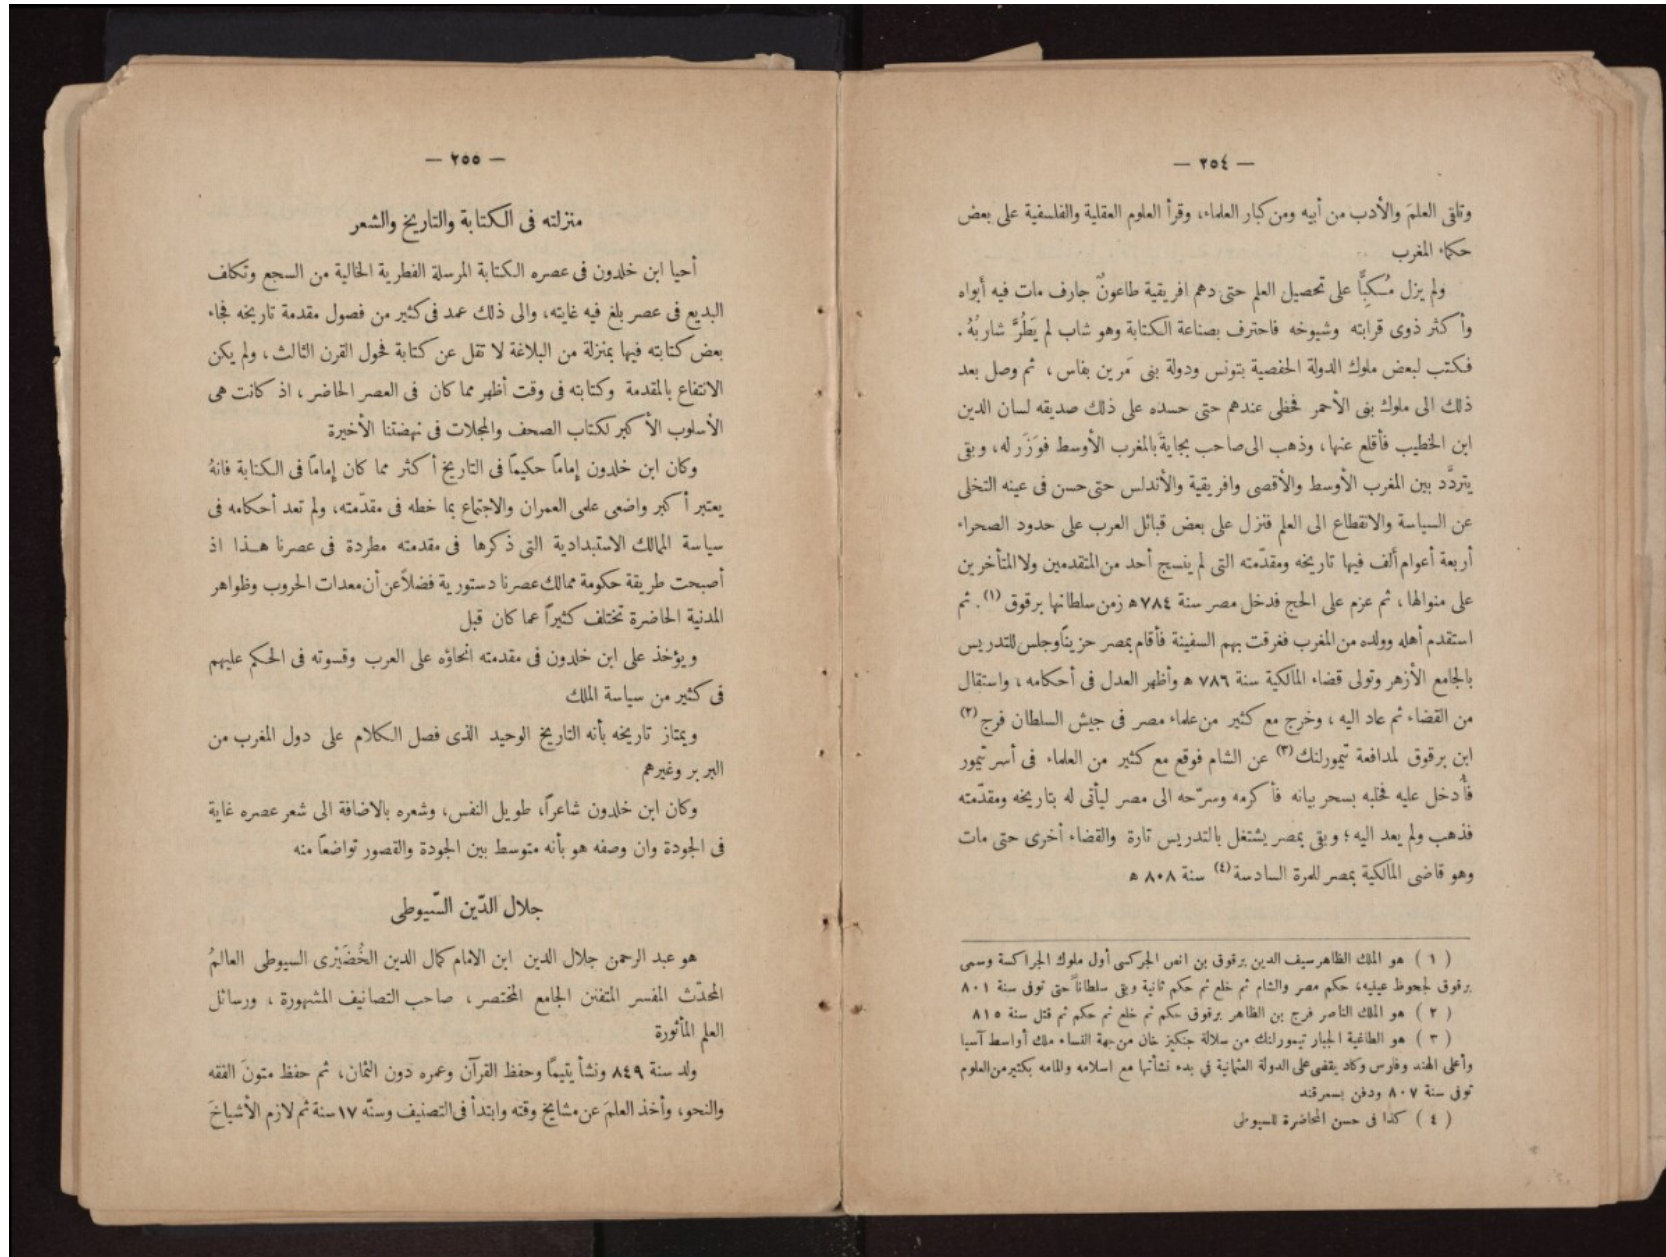 — ٢٥٤ —
وتلقى العلمَ والأدب من أبيه ومن كبار العلماء، وقرأ العلوم العقلية والفلسفية على بعض
حكماء المغرب
ولم يزل مُكبًّا على تحصيل العلم حتى دهم افريقية طاعونٌ جارف مات فيه أبواه
وأكثر ذوى قرابته وشيوخه فاحترف بصناعة الكتابة وهو شاب لم يَطُرَّ شاربُهُ .
فكتب لبعض ملوك الدولة الحفصية بتونس ودولة بنى مَرين بفاس ، ثم وصل بعد
ذلك الى ملوك بنى الأحمر فحظى عندهم حتى حسده على ذلك صديقه لسان الدين
ابن الخطيب فأقلع عنها، وذهب الى صاحب بجايةَ بالمغرب الأوسط فوَزَر له، وبقى
يتردَّد بين المغرب الأوسط والأقصى وافريقية والأندلس حتى حسن فى عينه التخلى
عن السياسة والانقطاع الى العلم فنزل على بعض قبائل العرب على حدود الصحراء
أربعة أعوام ألف فيها تاريخه ومقدّمته التى لم ينسج أحد من المتقدمين ولا المتأخرين
على منوالها ، ثم عزم على الحج فدخل مصر سنة ٧٨٤ ه زمن سلطانها برقوق (١) . ثم
استقدم أهله وولده من المغرب فغرقت بهم السفينة فأقام بمصر حزيناً وجلس للتدريس
بالجامع الأزهر وتولى قضاء المالكية سنة ٧٨٦ ه وأظهر العدل فى أحكامه ، واستقال
من القضاء ثم عاد اليه ، وخرج مع كثير من علماء مصر فى جيش السلطان فرج (٢)
ابن برقوق لمدافعة تَيمورلنك (٣) عن الشام فوقع مع كثير من العلماء فى أسر تَيمور
فأُدخل عليه فخلبه بسحر بيانه فأكرمه وسرّحه الى مصر ليأتى له بتاريخه ومقدّمته
فذهب ولم يعد اليه ؛ وبقى بمصر يشتغل بالتدريس تارة والقضاء أخرى حتى مات
وهو قاضى المالكية بمصر للمرة السادسة (٤) سنة ٨٠٨ ه
( ١ ) هو الملك الظاهر سيف الدين برقوق بن انص الجركسى أول ملوك الجراكسة وسمى
برقوق لجحوظ عينيه، حكم مصر والشام ثم خلع ثم حكم ثانية وبقى سلطاناً حتى توفى سنة ٨٠١
( ٢ ) هو الملك الناصر فرج بن الظاهر برقوق حكم ثم خلع ثم حكم ثم قتل سنة ٨١٥
( ٣ ) هو الطاغية الجبار تيمورلنك من سلالة جنكيز خان من جهة النساء ملك أواسط آسيا
وأعلى الهند وفارس وكاد يقضى على الدولة العثمانية في بدء نشأتها مع اسلامه والمامه بكثير من العلوم
توفى سنة ٨٠٧ ودفن بسمرقند
( ٤ ) كذا فى حسن المحاضرة للسيوطى
— ٢٥٥ —
منزلته فى الكتابة والتاريخ والشعر
أحيا ابن خلدون فى عصره الكتابة المرسلة الفطرية الخالية من السجع وتكلف
البديع فى عصر بلغ فيه غايته، والى ذلك عمد فى كثير من فصول مقدمة تاريخه فجاء
بعض كتابته فيها بمنزلة من البلاغة لا تقل عن كتابة فحول القرن الثالث ، ولم يكن
الانتفاع بالمقدمة وكتابته فى وقت أظهر مما كان فى العصر الحاضر ، اذ كانت هى
الأسلوب الأكبر لكتاب الصحف والمجلات فى نهضتنا الأخيرة
وكان ابن خلدون إماماً حكيماً فى التاريخ أكثر مما كان إماماً فى الكتابة فانهُ
يعتبر أكبر واضعى علمى العمران والاجتماع بما خطه فى مقدّمته، ولم تعد أحكامه فى
سياسة الممالك الاستبدادية التى ذكرها فى مقدمته مطردة فى عصرنا هـذا اذ
أصبحت طريقة حكومة ممالك عصرنا دستورية فضلاً عن أن معدات الحروب وظواهر
المدنية الحاضرة تختلف كثيراً عما كان قبل
ويؤخذ على ابن خلدون فى مقدمته انحاؤه على العرب وقسوته فى الحكم عليهم
فى كثير من سياسة الملك
ويمتاز تاريخه بأنه التاريخ الوحيد الذى فصل الكلام على دول المغرب من
البربر وغيرهم
وكان ابن خلدون شاعراً، طويل النفس، وشعره بالاضافة الى شعر عصره غاية
فى الجودة وان وصفه هو بأنه متوسط بين الجودة والقصور تواضعاً منه
جلال الدّين السّيوطى
هو عبد الرحمن جلال الدين ابن الامام كمال الدين الخُضَيْرى السيوطى العالمُ
المحدّث المفسر المتفنن الجامع المختصر ، صاحب التصانيف المشهورة ، ورسائل
العلم المأثورة
ولد سنة ٨٤٩ ونشأ يتيماً وحفظ القرآن وعمره دون الثمان، ثم حفظ متونَ الفقه
والنحو، وأخذ العلمَ عن مشايخ وقته وابتدأ فى التصنيف وسنّه ١٧ سنة ثم لازم الأشياخَ